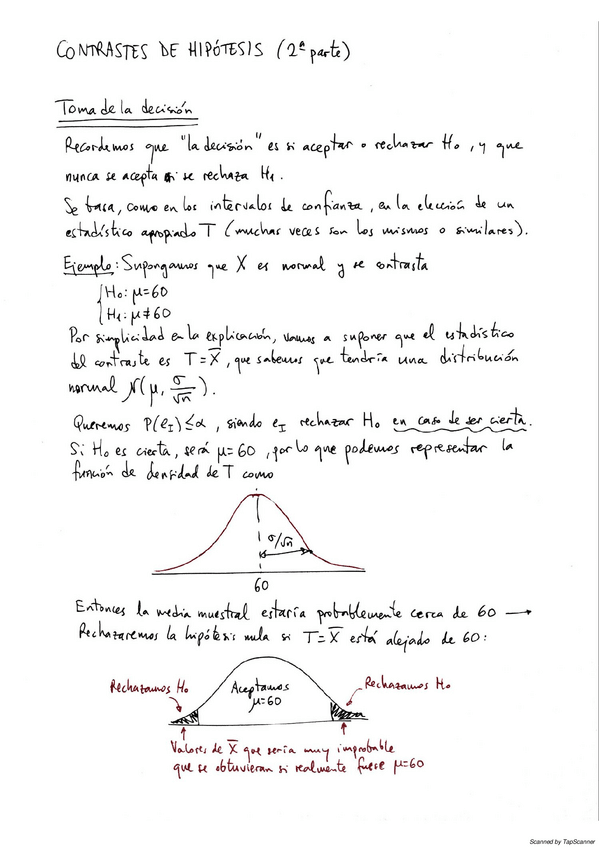 CONTRASTES DE HIPÓTESIS (2ª parte)
Toma de la decisión
Recordemos que "la decisión" es si aceptar o rechazar H₀, y que
nunca se acepta ni se rechaza H₁.
Se basa, como en los intervalos de confianza, en la elección de un
estadístico apropiado T (muchas veces son los mismos o similares).
Ejemplo: Supongamos que X es normal y se contrasta
{ H₀: μ=60
H₁: μ≠60
Por simplicidad en la explicación, vamos a suponer que el estadístico
del contraste es T = X̅, que sabemos que tendría una distribución
normal N(μ, σ/√n).
Queremos P(e_I) ≤ α, siendo e_I rechazar H₀ en caso de ser cierta.
Si H₀ es cierta, será μ=60, por lo que podemos representar la
función de densidad de T como
σ/√n
60
Entonces la media muestral estaría probablemente cerca de 60 →
Rechazaremos la hipótesis nula si T = X̅ está alejado de 60:
Rechazamos H₀
Aceptamos
μ=60
Rechazamos H₀
Valores de X̅ que sería muy improbable
que se obtuvieran si realmente fuese μ=60
Scanned by TapScanner